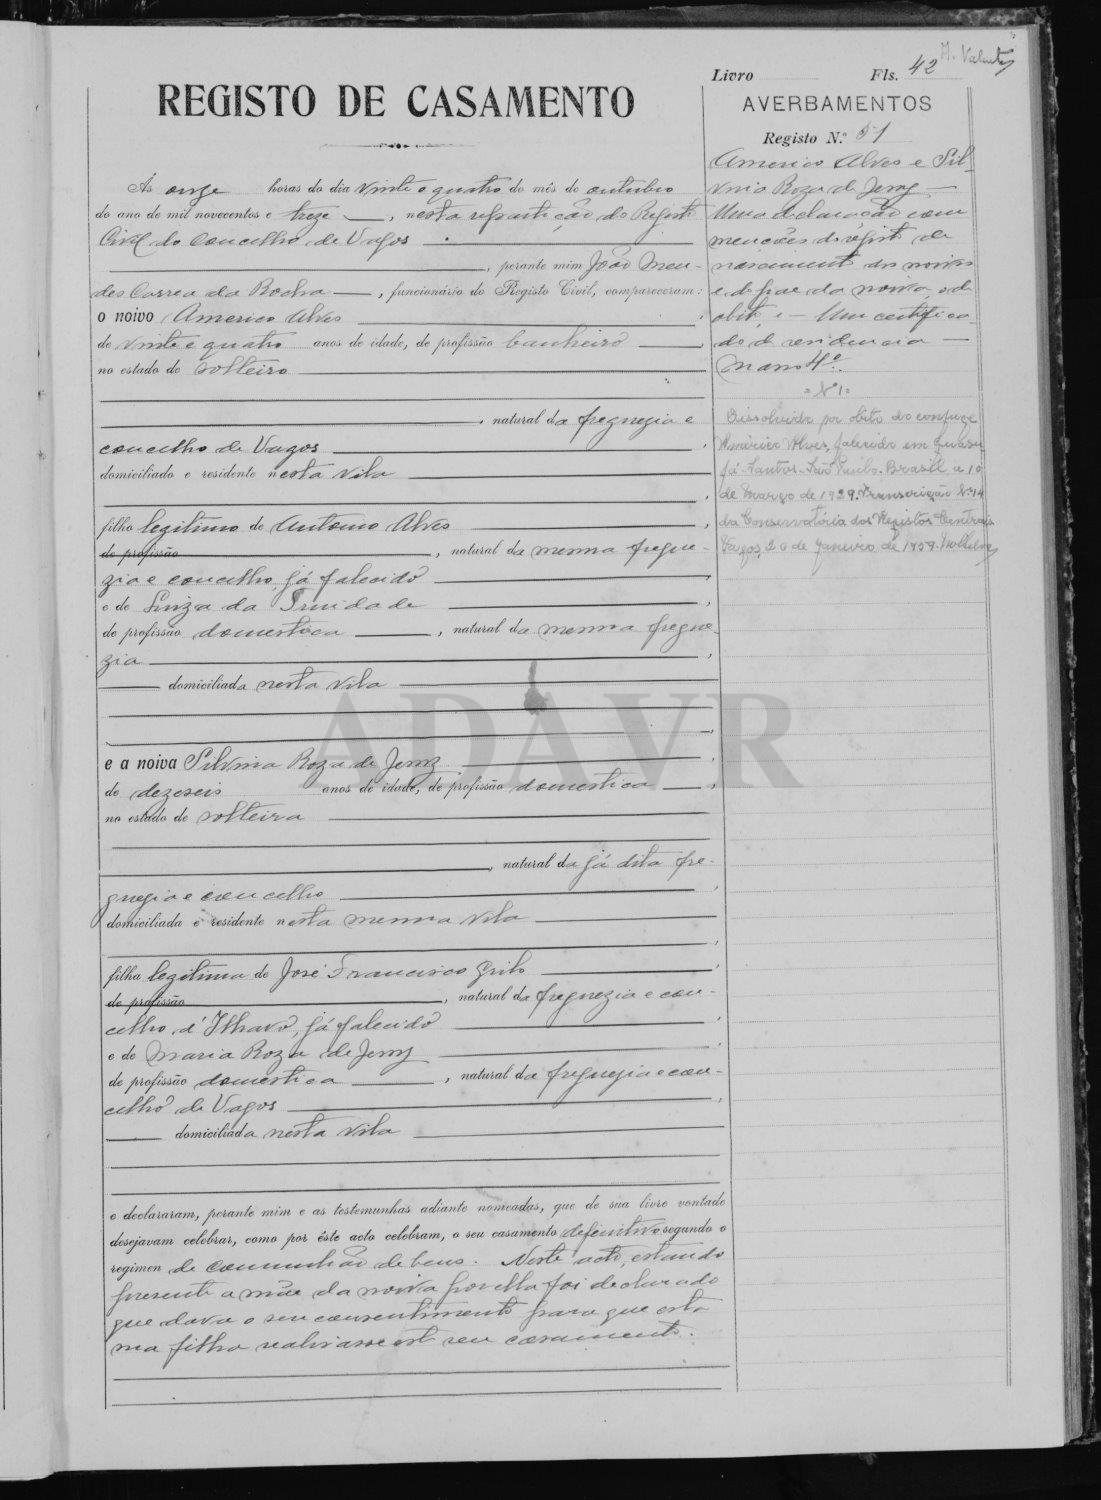 Livro Fls. 42 A. Valente
REGISTO DE CASAMENTO
AVERBAMENTOS
Registo N.º 51
Americo Alves e Sil-
vina Roza de Jesus —
Uma declaração com
menções do registo de
nascimento dos noivos
e de pae da noiva, o d
obito, e — Um certifica-
do de residencia —
Maço 4º.
= Nº1 =
Dissolvido por obito do conjuge
Américo Alves, falecido em Guaru
já-Santos-São Paulo-Brasil a 10
de Março de 1929. Transcrição Nº 14
da Conservatória dos Registos Centrais
Vagos, 20 de Janeiro de 1959.
Ás onze horas do dia vinte e quatro do mês de outubro
do ano de mil novecentos e treze —, nesta repartição do Registo
Civil do Concelho de Vagos
, perante mim João Men-
des Correa da Rocha —, funcionário do Registo Civil, compareceram:
o noivo Americo Alves
de vinte e quatro anos de idade, de profissão banheiro —,
no estado de solteiro
, natural da freguezia e
concelho de Vagos
domiciliado e residente nesta vila
filho legitimo de Antonio Alves
de profissão , natural da mesma fregue-
zia e concelho, já falecido
e de Luiza da Trindade
de profissão domestica —, natural da mesma fregue-
zia
domiciliada nesta vila
ADAVR
e a noiva Silvina Roza de Jesus
de dezeseis anos de idade, de profissão domestica —,
no estado de solteira
, natural da já dita fre-
guezia e concelho
domiciliada e residente nesta mesma vila
filha legitima de José Francisco Grilo
de profissão , natural da freguezia e con-
celho d'Ilhavo, já falecido
e de Maria Roza de Jesus
de profissão domestica —, natural da freguezia e con-
celho de Vagos
domiciliada nesta vila
e declararam, perante mim e as testemunhas adiante nomeadas, que de sua livre vontade
desejavam celebrar, como por êste acto celebram, o seu casamento definitivo segundo o
regimen de communhão de bens. Neste acto, estando
presente a mãe da noiva por ella foi declarado
que dava o seu consentimento para que esta
sua filha realisasse este seu casamento.